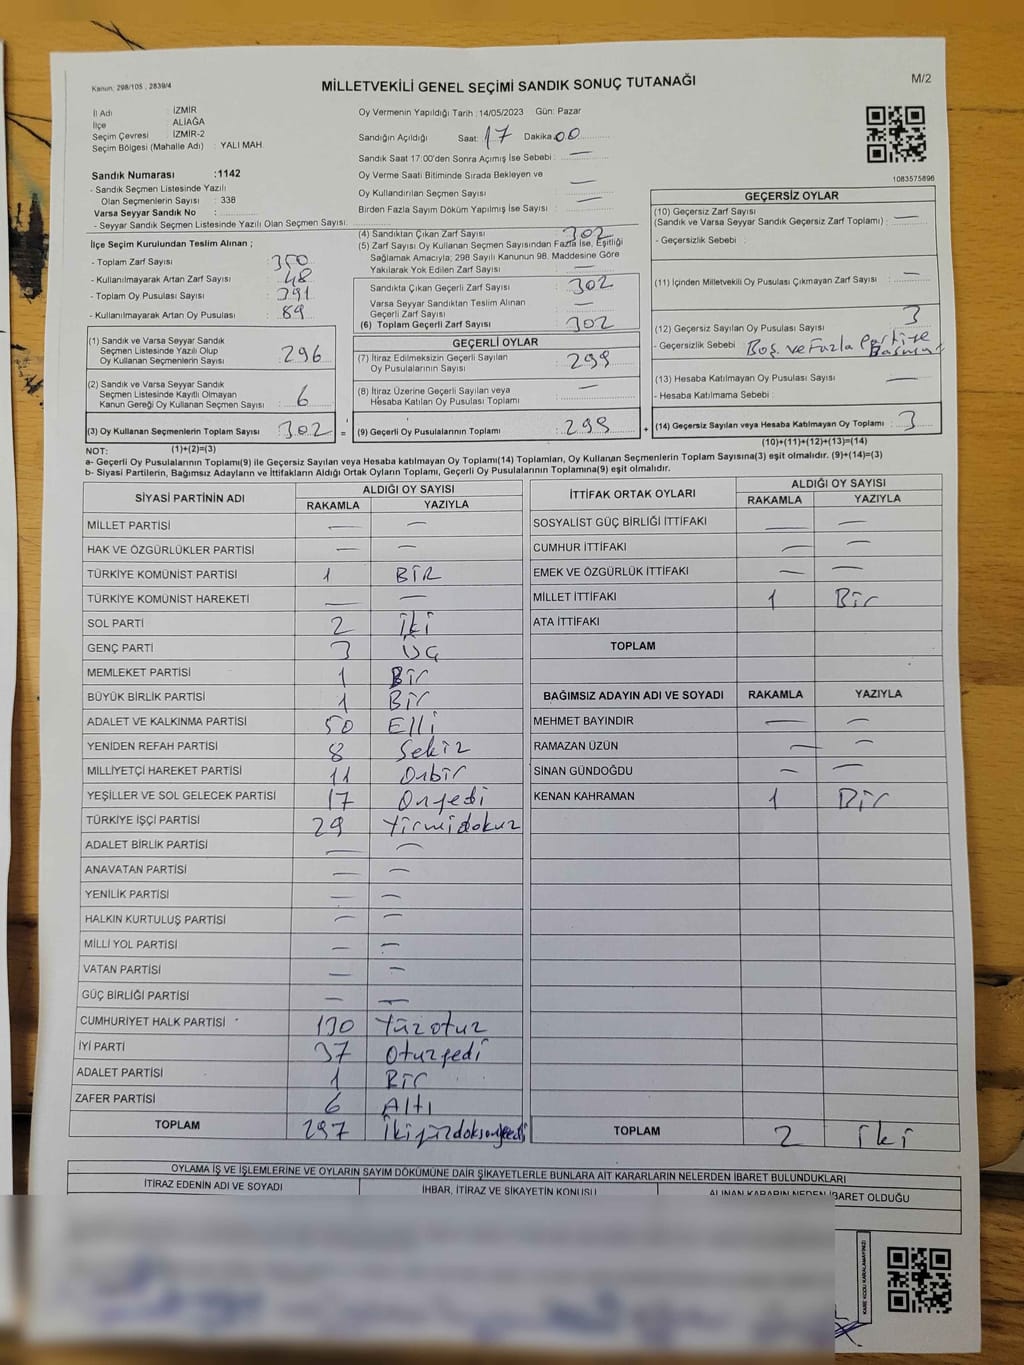 Kanun, 298/105 , 2839/4
MİLLETVEKİLİ GENEL SEÇİMİ SANDIK SONUÇ TUTANAĞI
M/2
İl Adı : İZMİR
İlçe : ALİAĞA
Seçim Çevresi : İZMİR-2
Seçim Bölgesi (Mahalle Adı) : YALI MAH.
Sandık Numarası :1142
- Sandık Seçmen Listesinde Yazılı
Olan Seçmenlerin Sayısı : 338
Varsa Seyyar Sandık No :
- Seyyar Sandık Seçmen Listesinde Yazılı Olan Seçmen Sayısı:
Oy Vermenin Yapıldığı Tarih :14/05/2023 Gün: Pazar
Sandığın Açıldığı Saat: 17 Dakika: 00
Sandık Saat 17:00'den Sonra Açımış İse Sebebi : —
Oy Verme Saati Bitiminde Sırada Bekleyen ve
Oy Kullandırılan Seçmen Sayısı : —
Birden Fazla Sayım Döküm Yapılmış İse Sayısı : —
1083575896
İlçe Seçim Kurulundan Teslim Alınan ;
- Toplam Zarf Sayısı : 350
- Kullanılmayarak Artan Zarf Sayısı : 48
- Toplam Oy Pusulası Sayısı : 391
- Kullanılmayarak Artan Oy Pusulası : 89
(1) Sandık ve Varsa Seyyar Sandık
Seçmen Listesinde Yazılı Olup
Oy Kullanan Seçmenlerin Sayısı : 296
(2) Sandık ve Varsa Seyyar Sandık
Seçmen Listesinde Kayıtlı Olmayan
Kanun Gereği Oy Kullanan Seçmen Sayısı : 6
(3) Oy Kullanan Seçmenlerin Toplam Sayısı : 302 =
(4) Sandıktan Çıkan Zarf Sayısı : 302
(5) Zarf Sayısı Oy Kullanan Seçmen Sayısından Fazla İse, Eşitliği
Sağlamak Amacıyla; 298 Sayılı Kanunun 98. Maddesine Göre
Yakılarak Yok Edilen Zarf Sayısı : —
Sandıkta Çıkan Geçerli Zarf Sayısı : 302
Varsa Seyyar Sandıktan Teslim Alınan
Geçerli Zarf Sayısı : —
(6) Toplam Geçerli Zarf Sayısı : 302
GEÇERLİ OYLAR
(7) İtiraz Edilmeksizin Geçerli Sayılan
Oy Pusulalarının Sayısı : 299
(8) İtiraz Üzerine Geçerli Sayılan veya
Hesaba Katılan Oy Pusulası Toplamı : —
(9) Geçerli Oy Pusulalarının Toplamı : 299 +
GEÇERSİZ OYLAR
(10) Geçersiz Zarf Sayısı
(Sandık ve Varsa Seyyar Sandık Geçersiz Zarf Toplamı) : —
- Geçersizlik Sebebi :
(11) İçinden Milletvekili Oy Pusulası Çıkmayan Zarf Sayısı : —
(12) Geçersiz Sayılan Oy Pusulası Sayısı : 3
- Geçersizlik Sebebi : Boş. ve Fazla Partiye
(13) Hesaba Katılmayan Oy Pusulası Sayısı : —
- Hesaba Katılmama Sebebi :
(14) Geçersiz Sayılan veya Hesaba Katılmayan Oy Toplamı : 3
NOT: (1)+(2)=(3) (10)+(11)+(12)+(13)=(14)
a- Geçerli Oy Pusulalarının Toplamı(9) ile Geçersiz Sayılan veya Hesaba katılmayan Oy Toplamı(14) Toplamları, Oy Kullanan Seçmenlerin Toplam Sayısına(3) eşit olmalıdır. (9)+(14)=(3)
b- Siyasi Partilerin, Bağımsız Adayların ve İttifakların Aldığı Ortak Oyların Toplamı, Geçerli Oy Pusulalarının Toplamına(9) eşit olmalıdır.
SİYASİ PARTİNİN ADI ALDIĞI OY SAYISI
RAKAMLA YAZIYLA
MİLLET PARTİSİ — —
HAK VE ÖZGÜRLÜKLER PARTİSİ — —
TÜRKİYE KOMÜNİST PARTİSİ 1 BİR
TÜRKİYE KOMÜNİST HAREKETİ — —
SOL PARTİ 2 İki
GENÇ PARTİ 3 Üç
MEMLEKET PARTİSİ 1 Bir
BÜYÜK BİRLİK PARTİSİ 1 Bir
ADALET VE KALKINMA PARTİSİ 50 Elli
YENİDEN REFAH PARTİSİ 8 Sekiz
MİLLİYETÇİ HAREKET PARTİSİ 11 Onbir
YEŞİLLER VE SOL GELECEK PARTİSİ 17 Onyedi
TÜRKİYE İŞÇİ PARTİSİ 29 Yirmidokuz
ADALET BİRLİK PARTİSİ — —
ANAVATAN PARTİSİ — —
YENİLİK PARTİSİ — —
HALKIN KURTULUŞ PARTİSİ — —
MİLLİ YOL PARTİSİ — —
VATAN PARTİSİ — —
GÜÇ BİRLİĞİ PARTİSİ — —
CUMHURİYET HALK PARTİSİ 130 Yüzotuz
İYİ PARTİ 37 Otuzyedi
ADALET PARTİSİ 1 Bir
ZAFER PARTİSİ 6 Altı
TOPLAM 297 İkiyüzdoksanyedi
İTTİFAK ORTAK OYLARI ALDIĞI OY SAYISI
RAKAMLA YAZIYLA
SOSYALİST GÜÇ BİRLİĞİ İTTİFAKI — —
CUMHUR İTTİFAKI — —
EMEK VE ÖZGÜRLÜK İTTİFAKI — —
MİLLET İTTİFAKI 1 Bir
ATA İTTİFAKI
TOPLAM
BAĞIMSIZ ADAYIN ADI VE SOYADI RAKAMLA YAZIYLA
MEHMET BAYINDIR — —
RAMAZAN ÜZÜN — —
SİNAN GÜNDOĞDU — —
KENAN KAHRAMAN 1 Bir
TOPLAM 2 iki
OYLAMA İŞ VE İŞLEMLERİNE VE OYLARIN SAYIM DÖKÜMÜNE DAİR ŞİKAYETLERLE BUNLARA AİT KARARLARIN NELERDEN İBARET BULUNDUKLARI
İTİRAZ EDENİN ADI VE SOYADI İHBAR, İTİRAZ VE ŞİKAYETİN KONUSU ALINAN KARARIN NEDEN İBARET OLDUĞU
KARE KODU KARALAMAYINIZ!